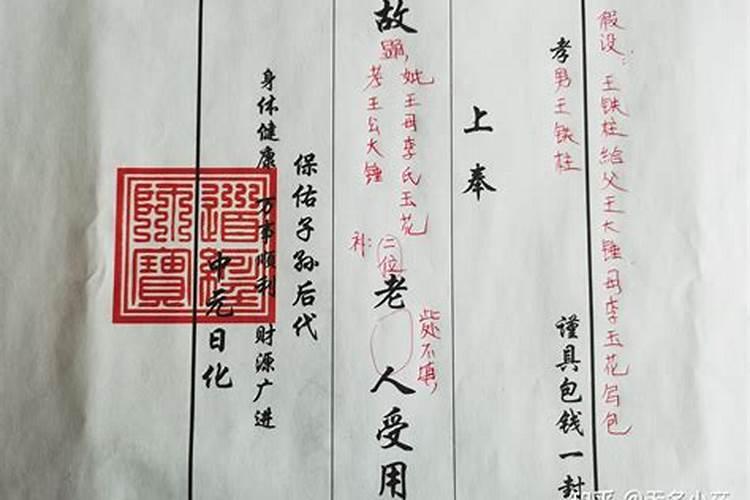 假设：王铁柱给父王大锤母李玉花写包
孝男王铁柱 谨具包钱一封
上奉
故
显，
妣王母李氏玉花
考王公大锤
补：二位
老人受用
此处不填，
保佑子孙后代
身体健康 万事顺利 财源广进
中元日化
道經師寶
知乎